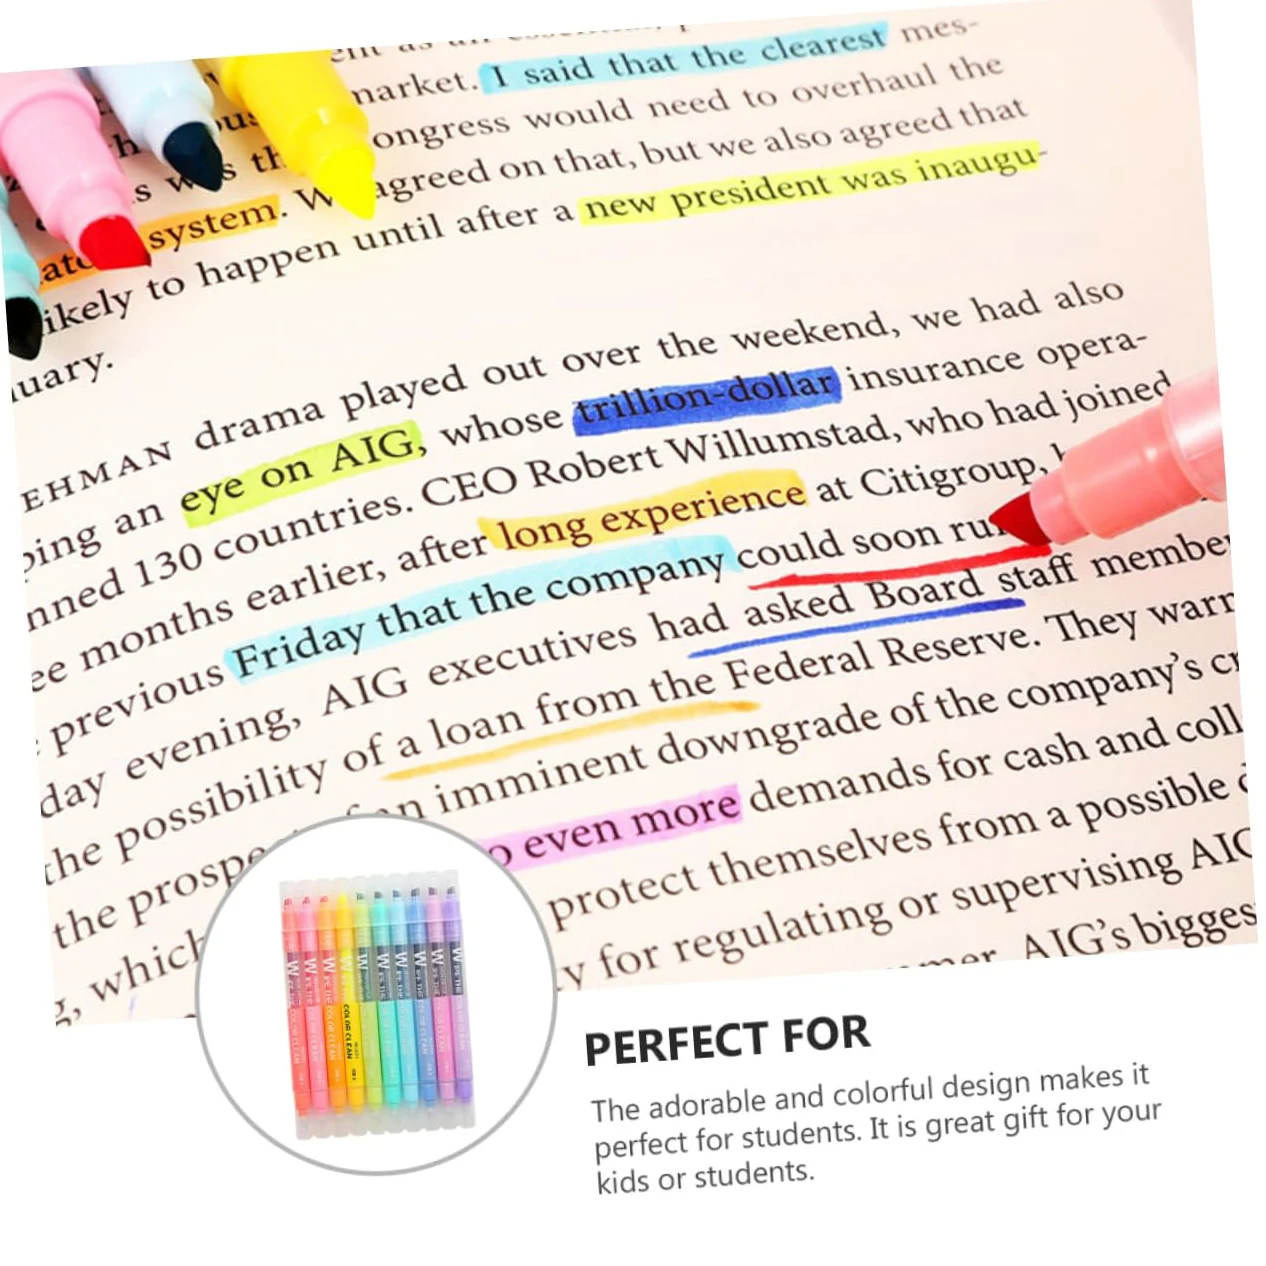 market. I said that the clearest mes-
ongress would need to overhaul the
agreed on that, but we also agreed that
system. W
likely to happen until after a new president was inaugu-
uary.
EHMAN drama played out over the weekend, we had also
ping an eye on AIG, whose trillion-dollar insurance opera-
nned 130 countries. CEO Robert Willumstad, who had joined
ee months earlier, after long experience at Citigroup,
previous Friday that the company could soon ru
day evening, AIG executives had asked Board staff member
the possibility of a loan from the Federal Reserve. They warn
the prospe an imminent downgrade of the company's cr
g, which o even more demands for cash and coll
protect themselves from a possible
y for regulating or supervising AIG
mer, AIG's bigges
COLOR CLEAN
PERFECT FOR
The adorable and colorful design makes it
perfect for students. It is great gift for your
kids or students.